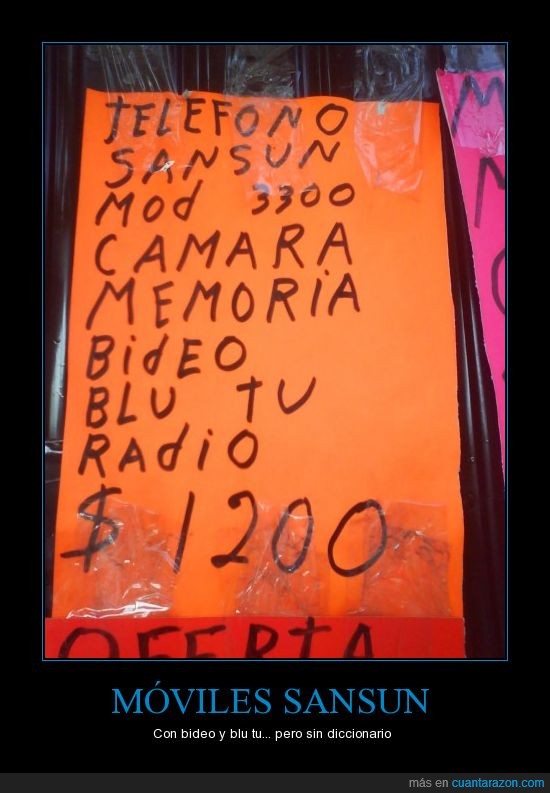 TELEFONO
SANSUN
Mod 3300
CAMARA
MEMORiA
BidEO
BLU TU
RAdiO
$ 1200
OFERTA
MÓVILES SANSUN
Con bideo y blu tu... pero sin diccionario
más en cuantarazon.com